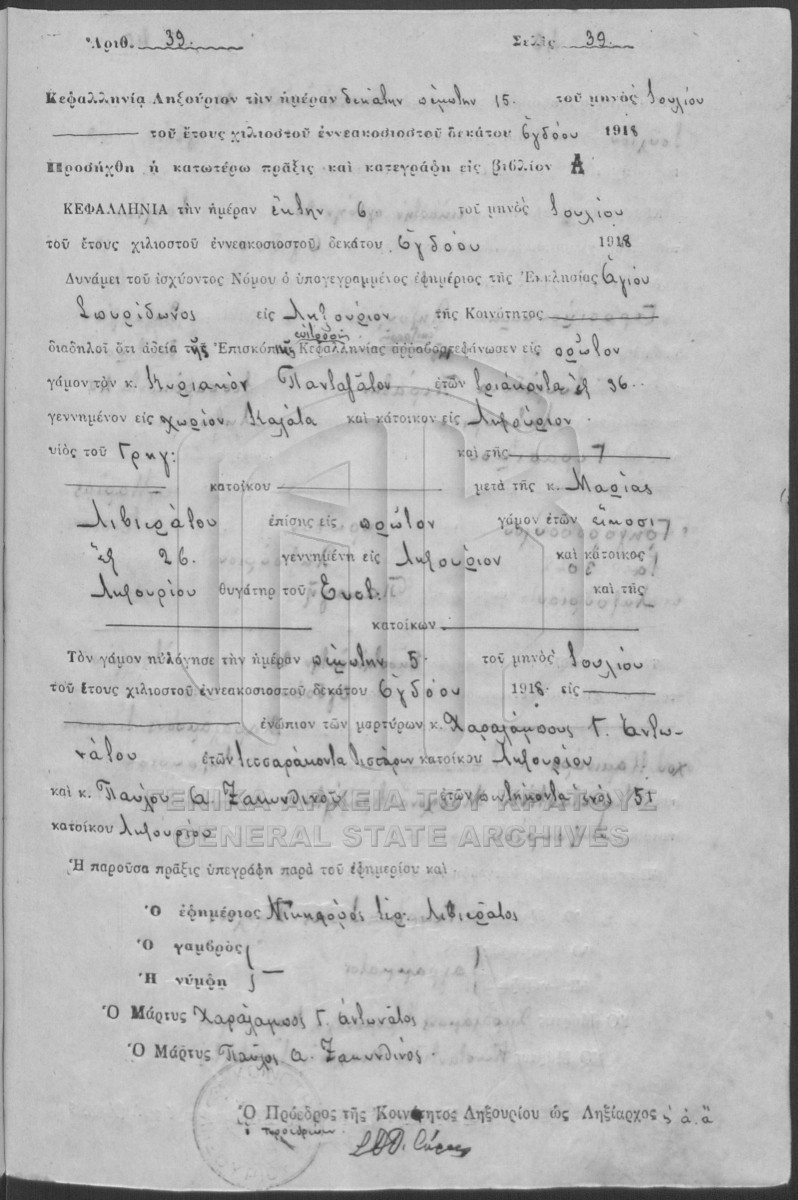 Ἀριθ. 39. Σελὶς 39.
Κεφαλληνία Ληξούριον τὴν ἡμέραν δεκάτην πέμπτην 15. τοῦ μηνὸς Ἰουλίου
τοῦ ἔτους χιλιοστοῦ ἐννεακοσιοστοῦ δεκάτου ὀγδόου 1918
Προσήχθη ἡ κατωτέρω πρᾶξις καὶ κατεγράφη εἰς βιβλίον Α
ΚΕΦΑΛΛΗΝΙΑ τὴν ἡμέραν ἕκτην 6 τοῦ μηνὸς Ἰουλίου
τοῦ ἔτους χιλιοστοῦ ἐννεακοσιοστοῦ δεκάτου ὀγδόου 1918
Δυνάμει τοῦ ἰσχύοντος Νόμου ὁ ὑπογεγραμμένος ἐφημέριος τῆς Ἐκκλησίας Ἁγίου
Σπυρίδωνος εἰς Ληξούριον τῆς Κοινότητος
διαδηλοῖ ὅτι ἀδείᾳ τῆς Ἐπισκοπῆς Κεφαλληνίας ἀρραβοστεφάνωσεν εἰς πρῶτον
γάμον τὸν κ. Κυριακὸν Πανταζᾶτον ἐτῶν τριάκοντα ἓξ 36.
γεννημένον εἰς χωρίον Καλάτα καὶ κάτοικον εἰς Ληξούριον.
υἱὸς τοῦ Γρηγ: καὶ τῆς
κατοίκου μετὰ τῆς κ. Μαρίας
Λιβιεράτου ἐπίσης εἰς πρῶτον γάμον ἐτῶν εἴκοσι
ἓξ 26. γεννημένη εἰς Ληξούριον καὶ κάτοικος
Ληξουρίου θυγάτηρ τοῦ Ευστ. καὶ τῆς
κατοίκων
Τὸν γάμον ηὐλόγησε τὴν ἡμέραν πέμπτην 5. τοῦ μηνὸς Ἰουλίου
τοῦ ἔτους χιλιοστοῦ ἐννεακοσιοστοῦ δεκάτου ὀγδόου 1918. εἰς
ἐνώπιον τῶν μαρτύρων κ. Χαραλάμπους Γ. Ἀντω-
νάτου ἐτῶν τεσσαράκοντα τεσσάρων κατοίκου Ληξουρίου
καὶ κ. Παύλου Α. Ζακυνθινοῦ ἐτῶν πεντήκοντα ἑνὸς 51
κατοίκου Ληξουρίου
ΓΕΝΙΚΑ ΑΡΧΕΙΑ ΤΟΥ ΚΡΑΤΟΥΣ
GENERAL STATE ARCHIVES
Ἡ παροῦσα πρᾶξις ὑπεγράφη παρὰ τοῦ ἐφημερίου καὶ
Ὁ ἐφημέριος Νικηφόρος ἱερ. Λιβιερᾶτος
Ὁ γαμβρὸς
Ἡ νύμφη
Ὁ Μάρτυς Χαράλαμπος Γ. Ἀντωνᾶτος
Ὁ Μάρτυς Παῦλος Α. Ζακυνθινός.
Ὁ Πρόεδρος τῆς Κοινότητος Ληξουρίου ὡς Ληξίαρχος